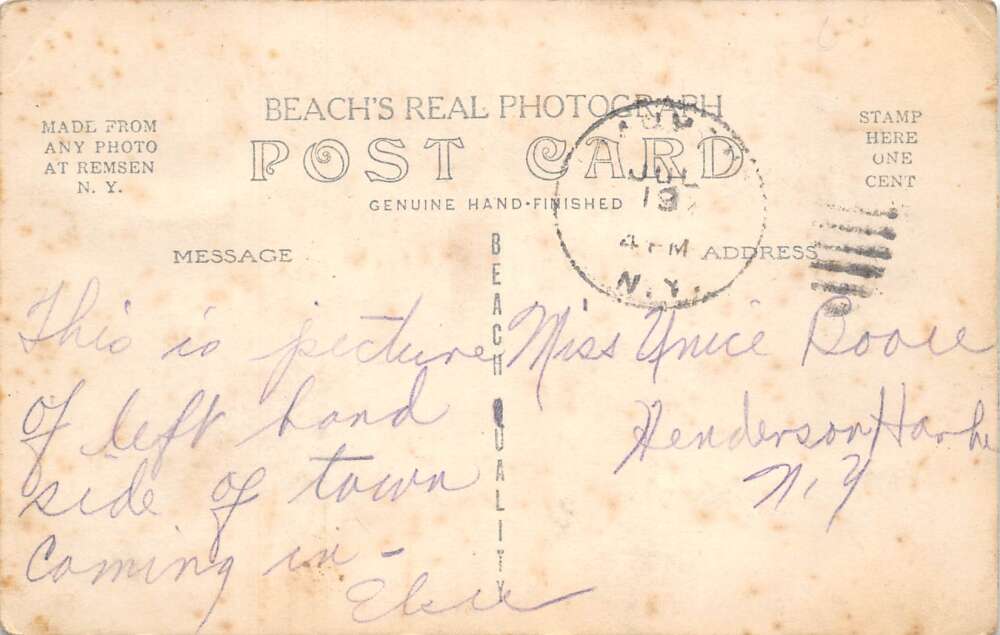 BEACH'S REAL PHOTOGRAPH
POST CARD
GENUINE HAND-FINISHED
MADE FROM
ANY PHOTO
AT REMSEN
N. Y.
STAMP
HERE
ONE
CENT
JUL
13
4 PM
N.Y.
MESSAGE
ADDRESS
BEACH QUALITY
This is picture
of left hand
side of town
coming in -
Elsie
Miss Unice
Henderson Harbor
N.Y